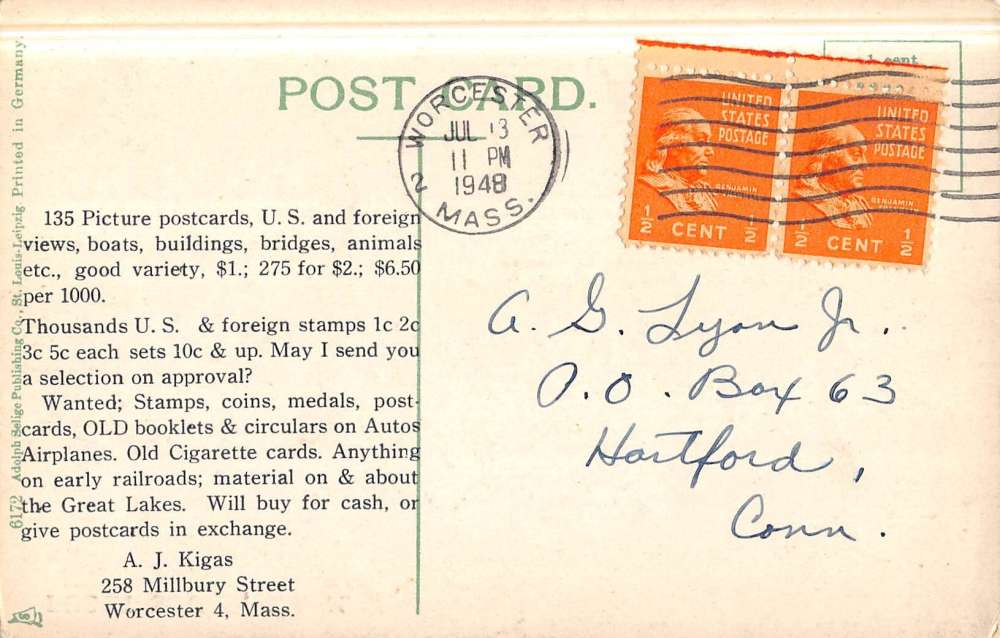 POST CARD.
1 cent
WORCESTER
JUL 13
11 PM
1948
MASS.
2
UNITED
STATES
POSTAGE
BENJAMIN
½ CENT ½
UNITED
STATES
POSTAGE
BENJAMIN
½ CENT ½
135 Picture postcards, U. S. and foreign
views, boats, buildings, bridges, animals
etc., good variety, $1.; 275 for $2.; $6.50
per 1000.
Thousands U. S. & foreign stamps 1c 2c
3c 5c each sets 10c & up. May I send you
a selection on approval?
Wanted; Stamps, coins, medals, post-
cards, OLD booklets & circulars on Autos
Airplanes. Old Cigarette cards. Anything
on early railroads; material on & about
the Great Lakes. Will buy for cash, or
give postcards in exchange.
A. J. Kigas
258 Millbury Street
Worcester 4, Mass.
A. G. Lyon Jr.
P.O. Box 63
Hartford,
Conn.
6172 Adolph Selige Publishing Co., St. Louis-Leipzig Printed in Germany.